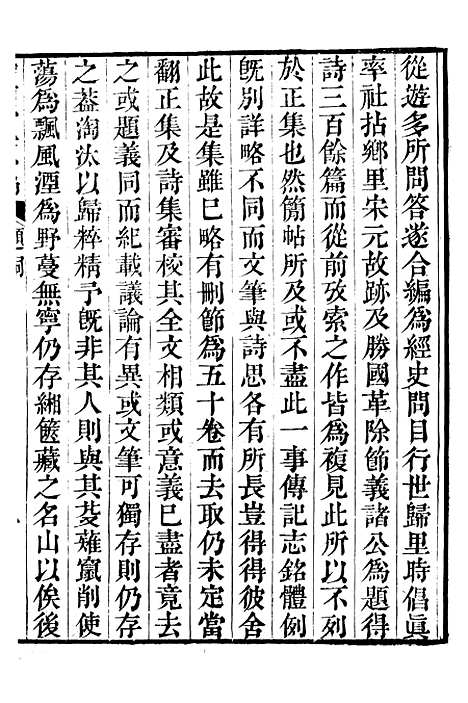 從遊多所問答遂合編爲經史問目行世歸里時倡眞
率社拈鄉里宋元故跡及勝國革除節義諸公爲題得
詩三百餘篇而從前攷索之作皆爲複見此所以不列
於正集也然簡帖所及或不盡此一事傳記志銘體例
旣別詳略不同而文筆與詩思各有所長豈得得彼舍
此故是集雖已略有刪節爲五十卷而去取仍未定當
翻正集及詩集審校其全文相類或意義已盡者竟去
之或題義同而紀載議論有異或文筆可獨存則仍存
之葢淘汰以歸粹精予旣非其人則與其芟薙竄削使
蕩爲飄風湮爲野蔓無寧仍存緗篋藏之名山以俟後
題詞